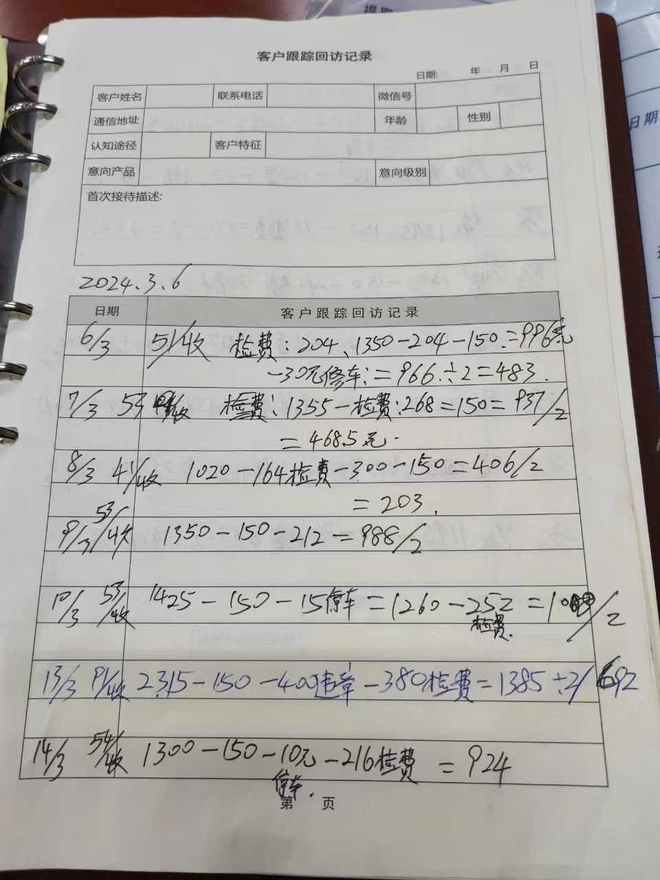 客户跟踪回访记录
日期: 年 月 日
客户姓名 联系电话 微信号
通信地址 年龄 性别
认知途径 客户特征
意向产品 意向级别
首次接待描述:
2024.3.6
日期 客户跟踪回访记录
6/3 51/收 检费:204、1350-204-150:=996元
-30元修车:=966÷2=483.
7/3 53 收 检费:1355-检费:268=150=937/2
=468.5元.
8/3 41/收 1020-164检费-300-150=406/2
=203.
9/3 53/收 1350-150-212=988/2
10/3 53/收 1425-150-15停车=1260-252=10 /2
检费.
13/3 91/收 2315-150-400违章-380检费=1385÷2/692
14/3 54/收 1300-150-10元-216检费=924
停车.
第 页
日期